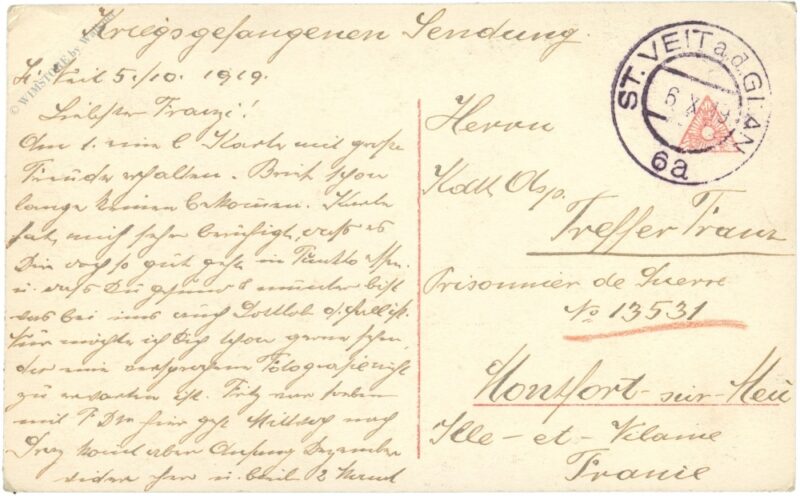 Kriegsgefangenen Sendung.
St. Veit 5./10. 1919.
Liebster Franzi!
Am 1. eine l. Karte mit große
Freude erhalten. Brief schon
lange keinen bekommen. Karte
hat mich sehr beruhigt, daß es
Dir doch so gut geht in Punkto
u. daß Du gesund u. munter bist
das bei uns auch Gottlob d. Fall ist.
Nur möchte ich Dich schon gerne sehen,
der eine versprochene Fotografie nicht
zu erwarten ist. Fritz war soeben
mit hier geht Mittwoch nach
Graz kommt aber Anfang Dezember
wieder her u. bleibt 2 Monat
Herrn
Kdtt. Asp.
Treffer Franz
Prisonnier de Guerre
No 13531
Montfort-sur-Meu
Ille-et-Vilaine
France
ST. VEIT a.d. GLAN
6 X 19
6a
© WIMSTORE by